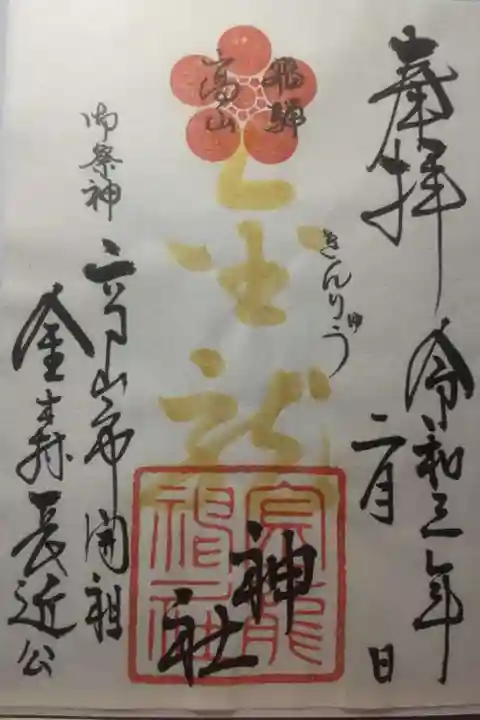 奉拝
令和三年
二月 日
飛騨
高山
金龍
きんりゅう
神社
御祭神
高山市開祖
金森長近公